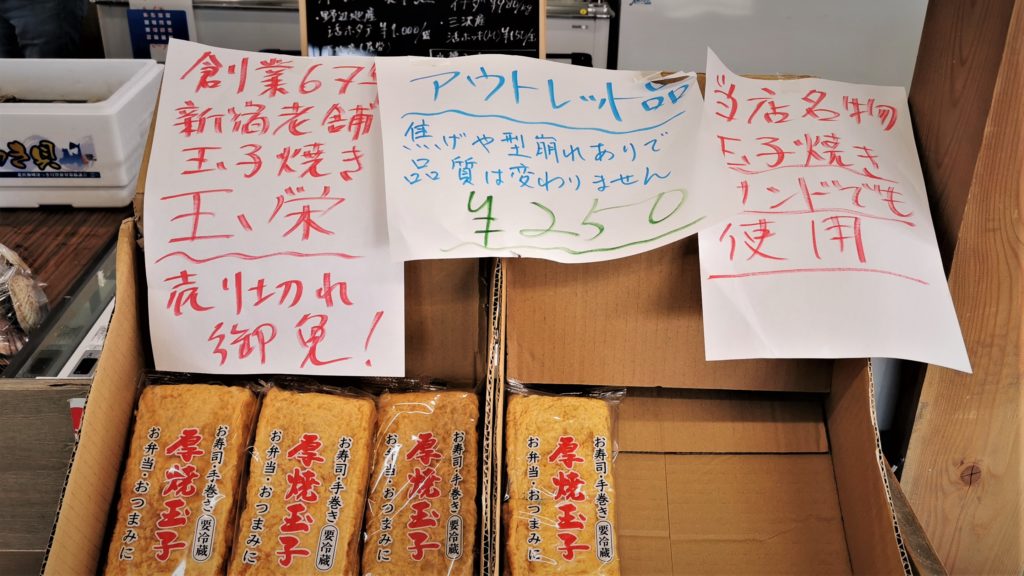 野辺地産
活ホタテ ¥1,000/
三沢産
創業67年
新宿老舗
玉子焼き
王栄
売り切れ
御免!
アウトレット品
焦げや型崩れありで
品質は変わりません
¥250
当店名物
玉子焼き
サンドでも
使用
お寿司・手巻き
厚焼玉子
お弁当・おつまみに
要冷蔵
お寿司・手巻き
厚焼玉子
お弁当・おつまみに
要冷蔵
お寿司・手巻き
厚焼玉子
お弁当・おつまみに
要冷蔵
お寿司・手巻き
厚焼玉子
お弁当・おつまみに
要冷蔵